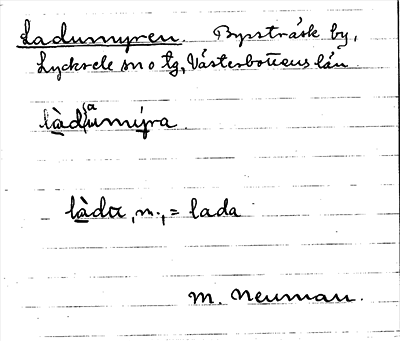 Ladumyren. Byssträsk by,
Lycksele sn o tg, Västerbottens län.
làd{a/u}mýra.
làdū, m., = lada
M. Neuman.